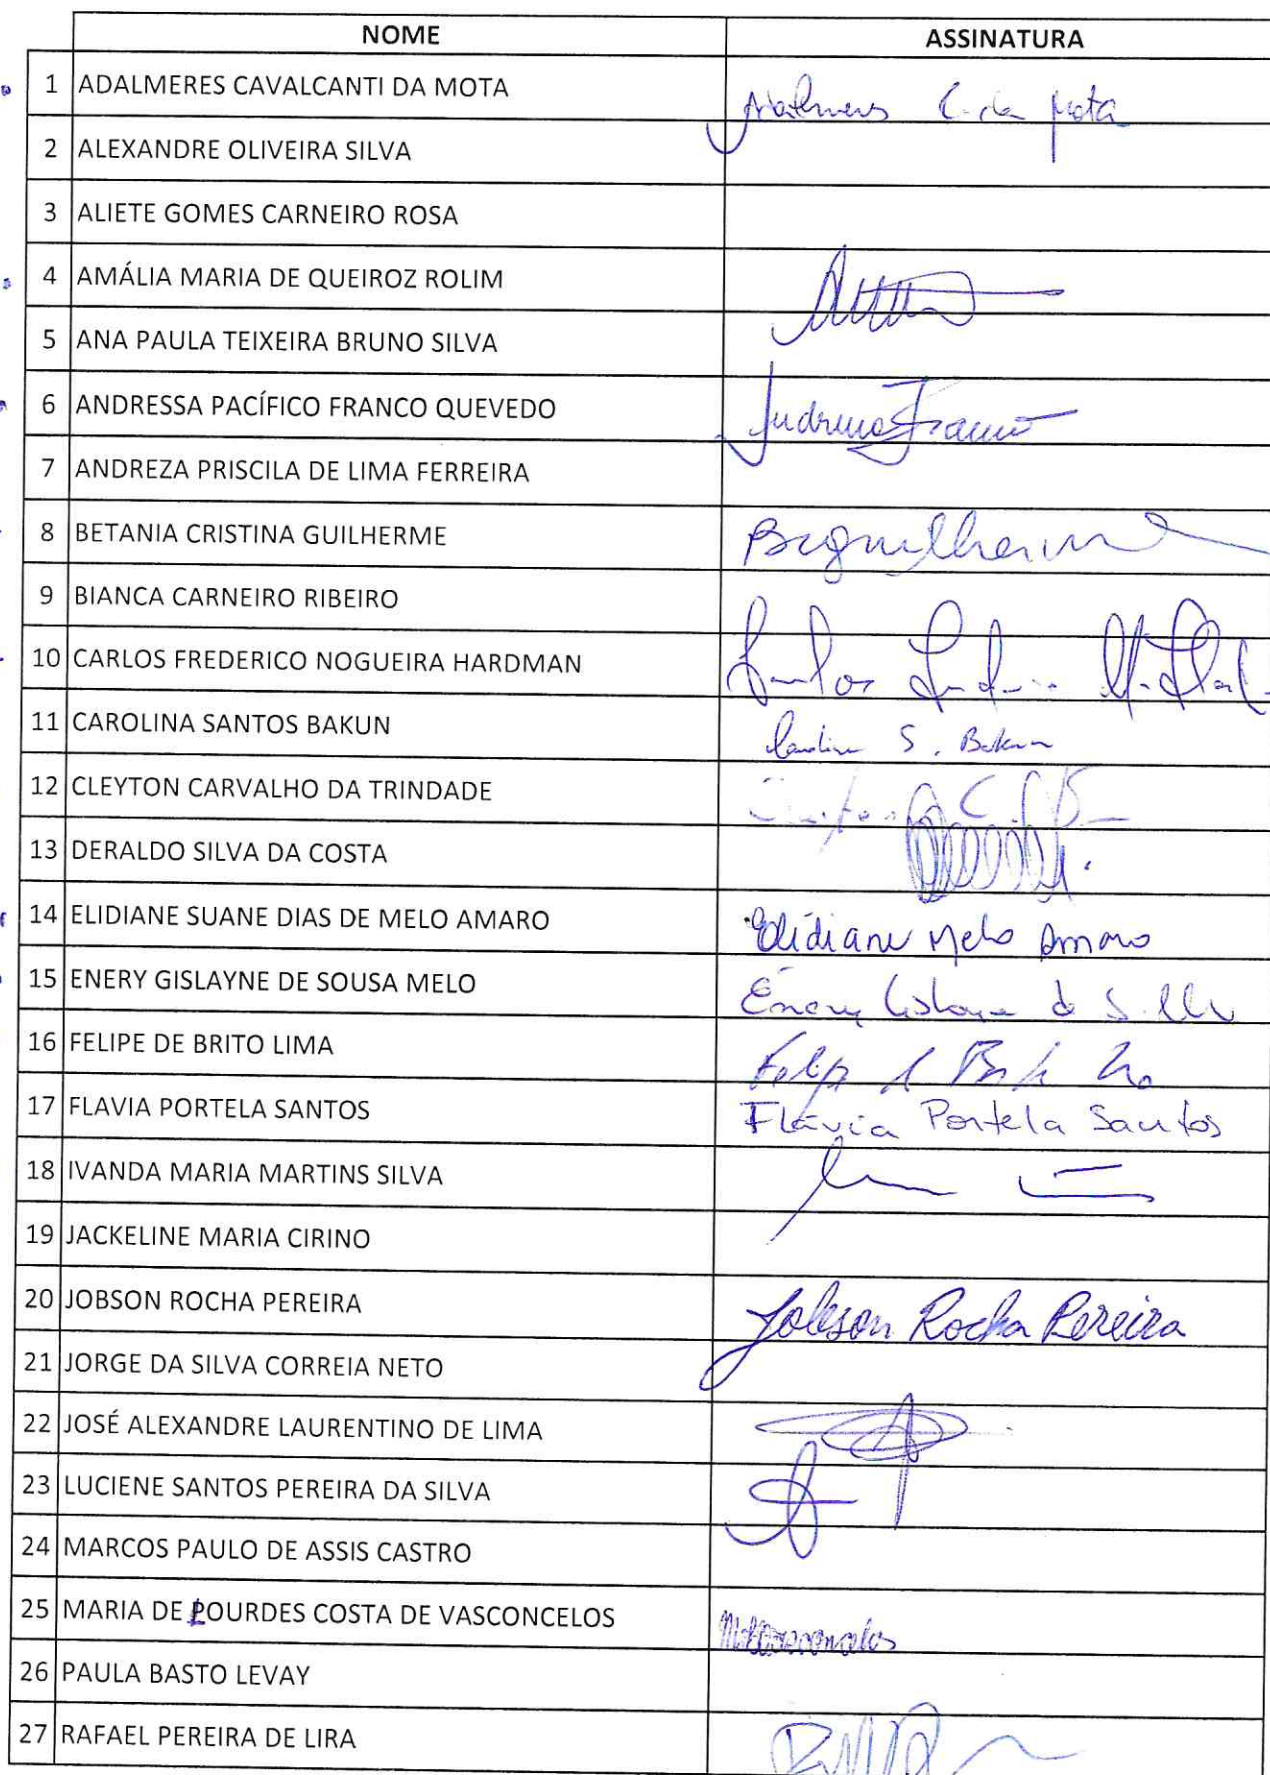 NOME ASSINATURA
1 ADALMERES CAVALCANTI DA MOTA
2 ALEXANDRE OLIVEIRA SILVA
3 ALIETE GOMES CARNEIRO ROSA
4 AMÁLIA MARIA DE QUEIROZ ROLIM
5 ANA PAULA TEIXEIRA BRUNO SILVA
6 ANDRESSA PACÍFICO FRANCO QUEVEDO
7 ANDREZA PRISCILA DE LIMA FERREIRA
8 BETANIA CRISTINA GUILHERME
9 BIANCA CARNEIRO RIBEIRO
10 CARLOS FREDERICO NOGUEIRA HARDMAN
11 CAROLINA SANTOS BAKUN Carolina S. Bakun
12 CLEYTON CARVALHO DA TRINDADE
13 DERALDO SILVA DA COSTA
14 ELIDIANE SUANE DIAS DE MELO AMARO Elidiane Melo Amaro
15 ENERY GISLAYNE DE SOUSA MELO Enery Gislayne de S. Melo
16 FELIPE DE BRITO LIMA
17 FLAVIA PORTELA SANTOS Flávia Portela Santos
18 IVANDA MARIA MARTINS SILVA
19 JACKELINE MARIA CIRINO
20 JOBSON ROCHA PEREIRA Jobson Rocha Pereira
21 JORGE DA SILVA CORREIA NETO
22 JOSÉ ALEXANDRE LAURENTINO DE LIMA
23 LUCIENE SANTOS PEREIRA DA SILVA
24 MARCOS PAULO DE ASSIS CASTRO
25 MARIA DE LOURDES COSTA DE VASCONCELOS
26 PAULA BASTO LEVAY
27 RAFAEL PEREIRA DE LIRA